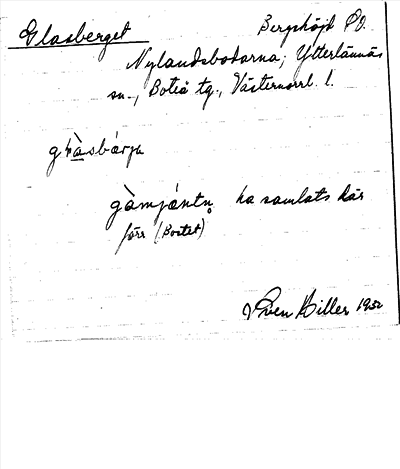 Glasberget Berghöjd PO.
Nylandsbodarna, Ytterlännäs
sn., Boteå tg., Västernorrl. l.
gḷàsbárja
gàmjántn̥ ha samlats här
förr (Bostet)
Sven Hiller 1952